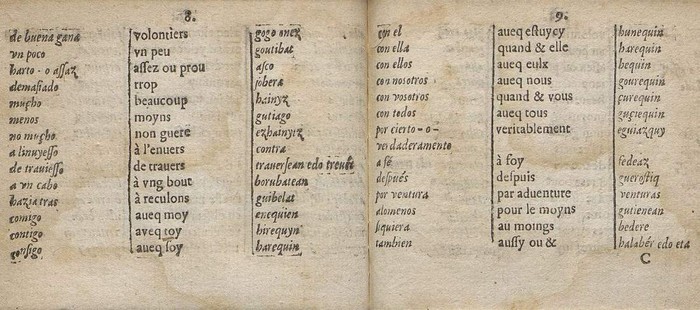 8.
de buena gana volontiers gogo onez
vn poco vn peu goutibat
harto - o assaz assez ou prou asco
demasiado trop sobera
mucho beaucoup hainyz
menos moyns gutiago
no mucho non guere ezhainyiz
a linuesso à l'enuers contra
de trauiesso de trauers trauersean edo
a vn cabo à vng bout borubatean
hazia tras à reculons guibelat
comigo aueq moy anequien
contigo aveq toy hirequyn
consigo aueq soy harequin
9.
con el aueq estuycy hunequin
con ella quand & elle harequin
con ellos aueq eulx hequin
con nosotros aueq nous gourequin
con vosotros quand & vous çurequin
con todos aueq tous guçiequin
por cierto - o - veritablement eguiazquy
verdaderamento
a fé à foy fedeaz
después despuis guerostiq
por ventura par aduenture venturas
alomenos pour le moyns gutienean
siquiera au moings bedere
tambien aussy ou & balabér edo eta
C